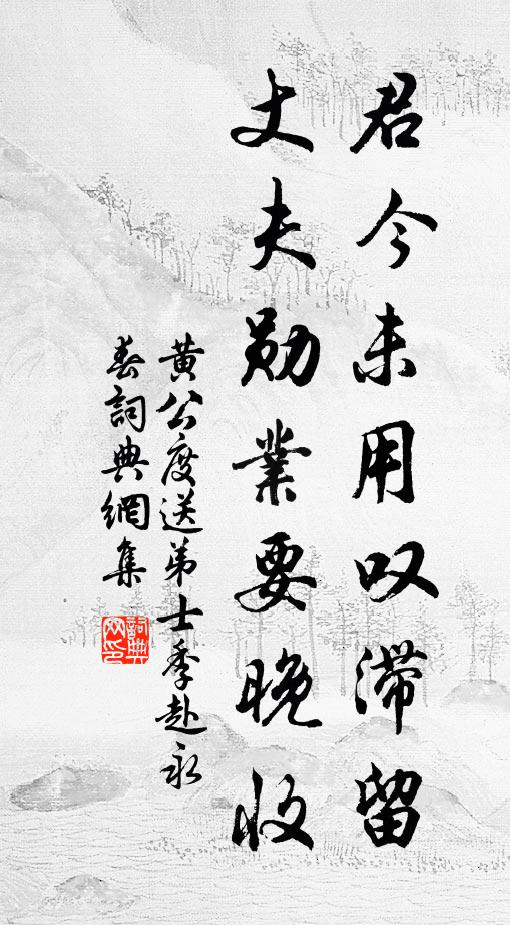 君今未用叹滞留
丈夫勋業要晚收
黄公度送弟士季赴永
春詞典網集
詞典网印